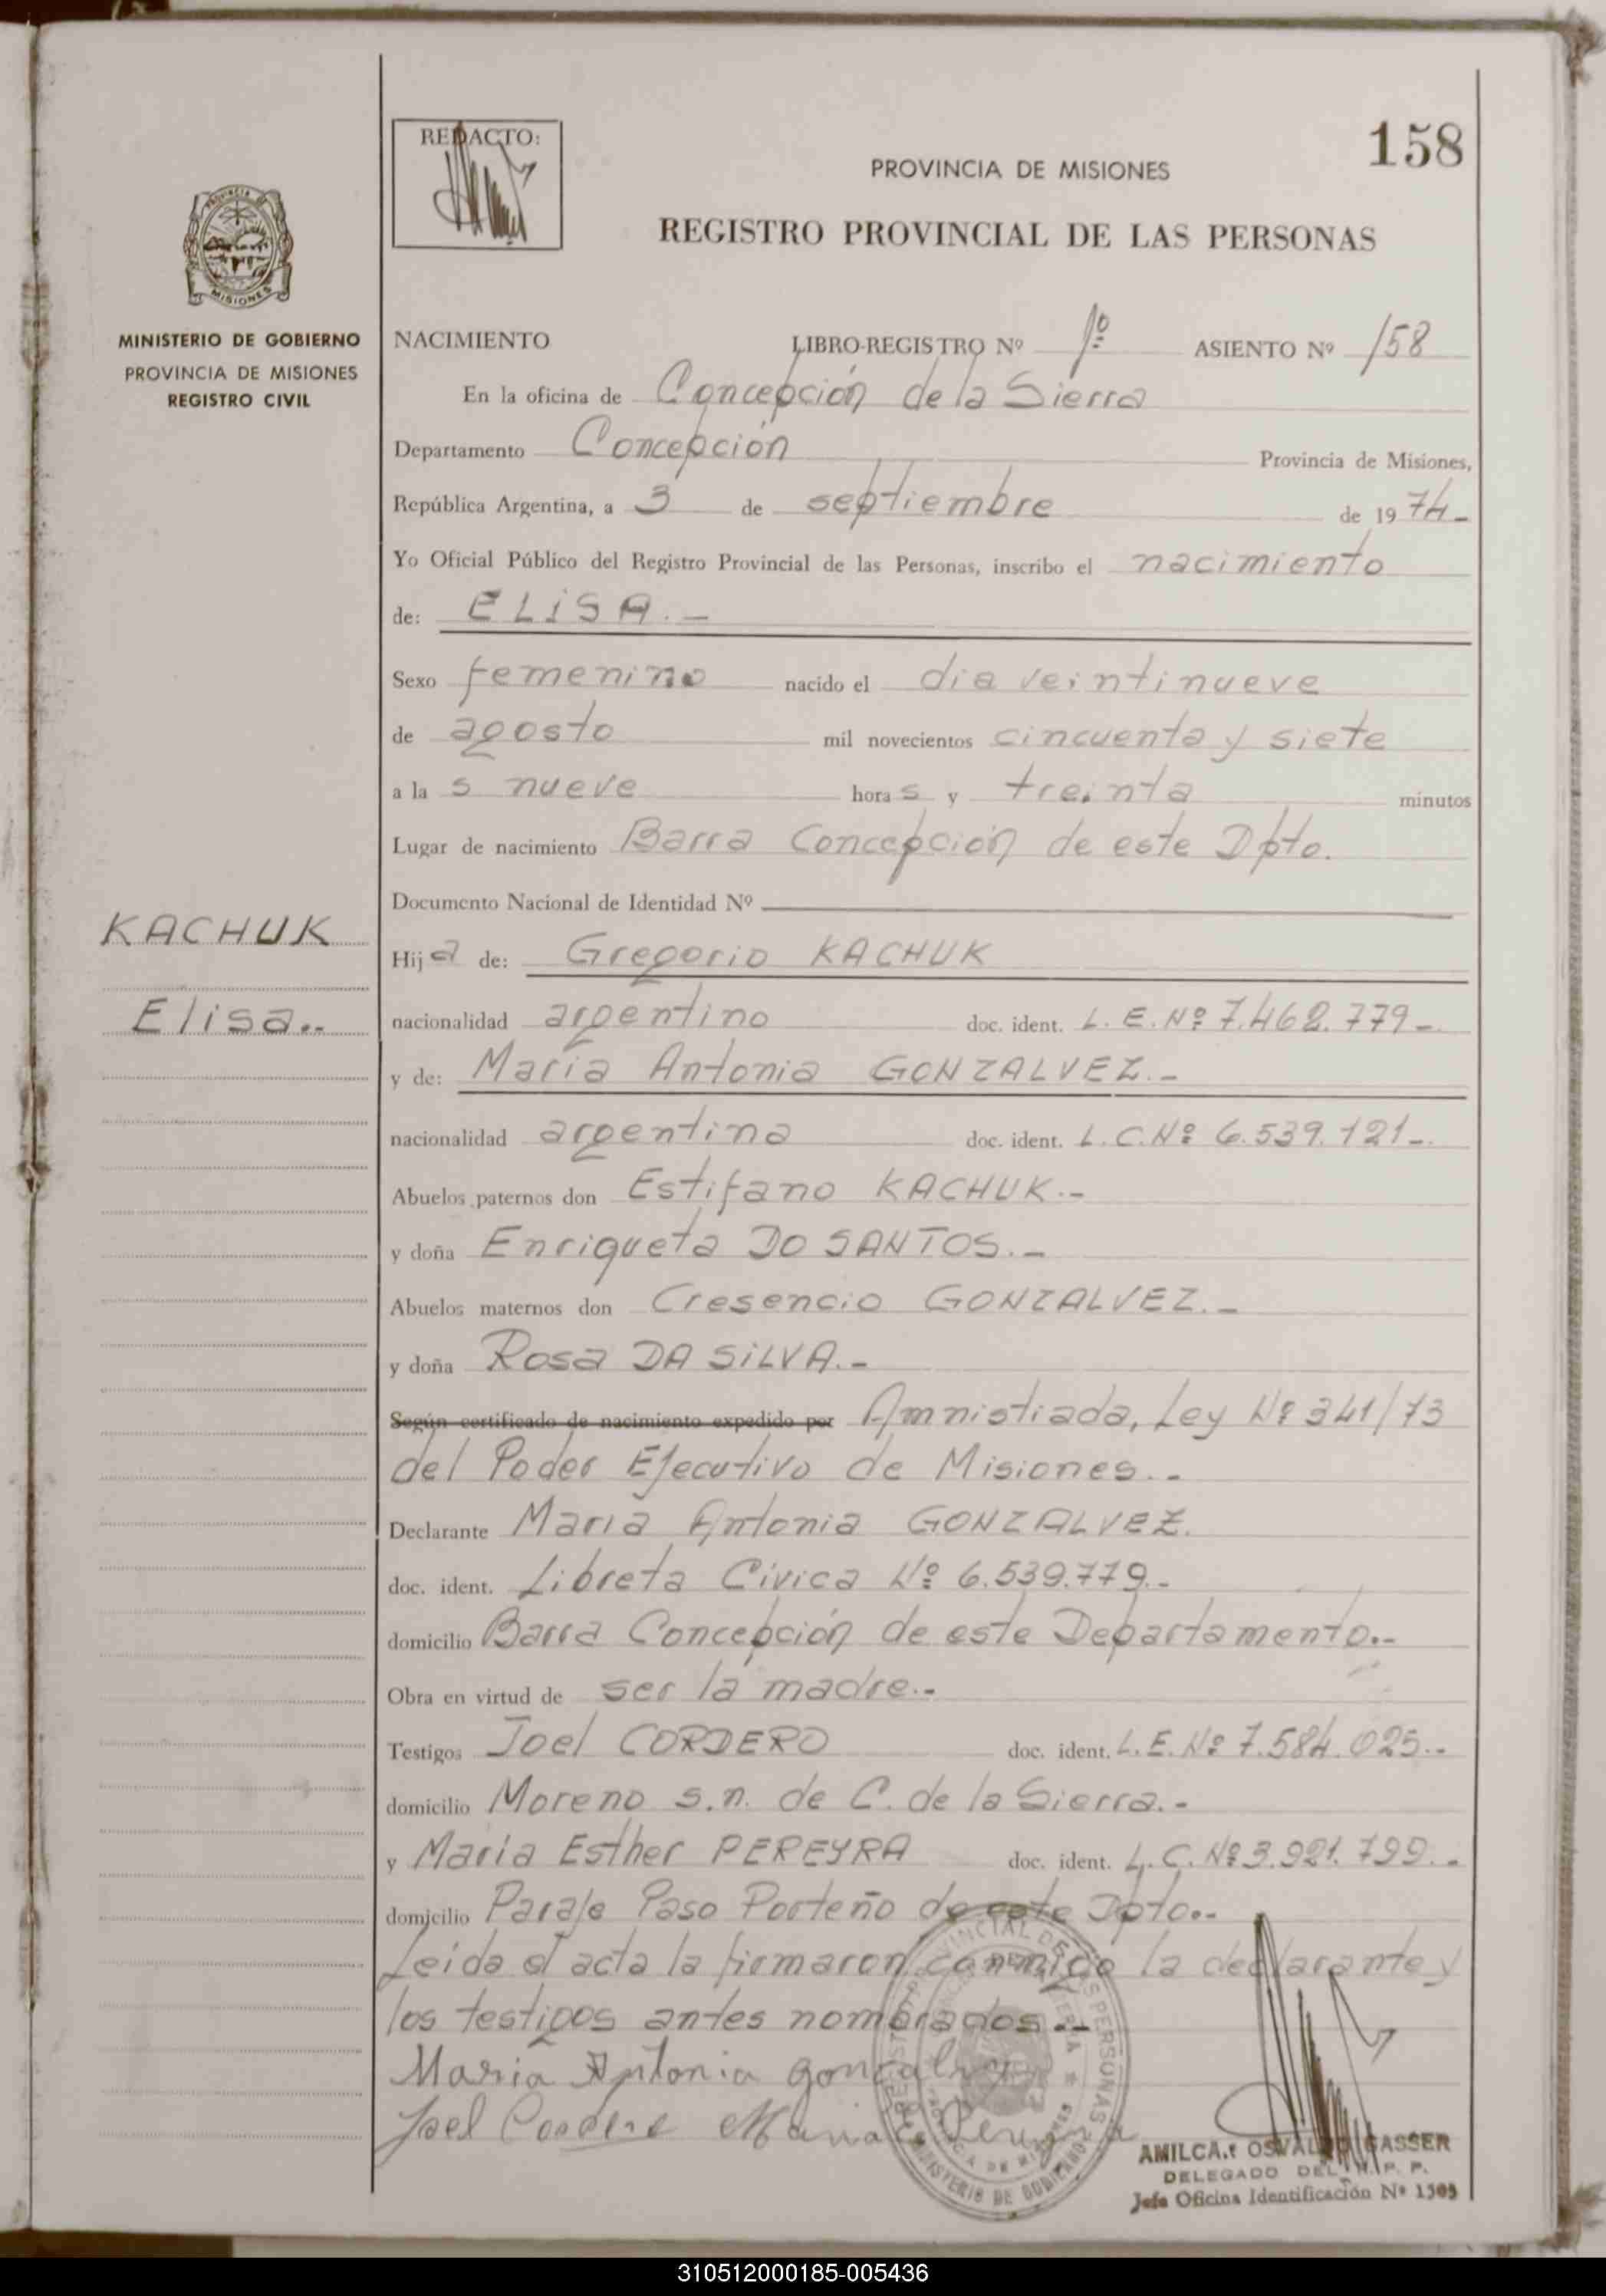 158
REDACTO:
PROVINCIA DE MISIONES
REGISTRO PROVINCIAL DE LAS PERSONAS
MISIONES
MINISTERIO DE GOBIERNO
PROVINCIA DE MISIONES
REGISTRO CIVIL
NACIMIENTO LIBRO-REGISTRO Nº 1º ASIENTO Nº 158
En la oficina de Concepción de la Sierra
Departamento Concepción Provincia de Misiones,
República Argentina, a 3 de septiembre de 1974.-
Yo Oficial Público del Registro Provincial de las Personas, inscribo el nacimiento
de: ELISA.-
Sexo femenino nacido el dia veintinueve
de agosto mil novecientos cincuenta y siete
a las nueve horas y treinta minutos
Lugar de nacimiento Barra Concepción de este Dpto.
Documento Nacional de Identidad Nº
KACHUK
Elisa..
Hija de: Gregorio KACHUK
nacionalidad argentino doc. ident. L. E. Nº 7.462.779-
y de: María Antonia GONZALVEZ.-
nacionalidad argentina doc. ident. L.C.Nº 6.539.121-.
Abuelos paternos don Estifano KACHUK.-
y doña Enriqueta DO SANTOS.-
Abuelos maternos don Cresencio GONZALVEZ.-
y doña Rosa DA SILVA.-
Según certificado de nacimiento expedido por Amnistiada, Ley Nº 341/73
del Poder Ejecutivo de Misiones.-
Declarante María Antonia GONZALVEZ.
doc. ident. Libreta Cívica Nº 6.539.779.-
domicilio Barra Concepción de este Departamento.-
Obra en virtud de ser la madre.-
Testigos Joel CORDERO doc. ident. L.E. Nº 7.584.025.-
domicilio Moreno s.n. de C. de la Sierra.-
y María Esther PEREYRA doc. ident. L.C. Nº 3.921.799.-
domicilio Paraje Paso Porteño de este Dpto.-
Leida el acta la firmaron conmigo la declarante y
los testigos antes nombrados.-
Maria Antonia
Joel Cordero Maria Pereyra
AMILCAR OSVALDO GASSER
DELEGADO DEL R. P. P.
Jefe Oficina Identificación Nº 1505
310512000185-005436